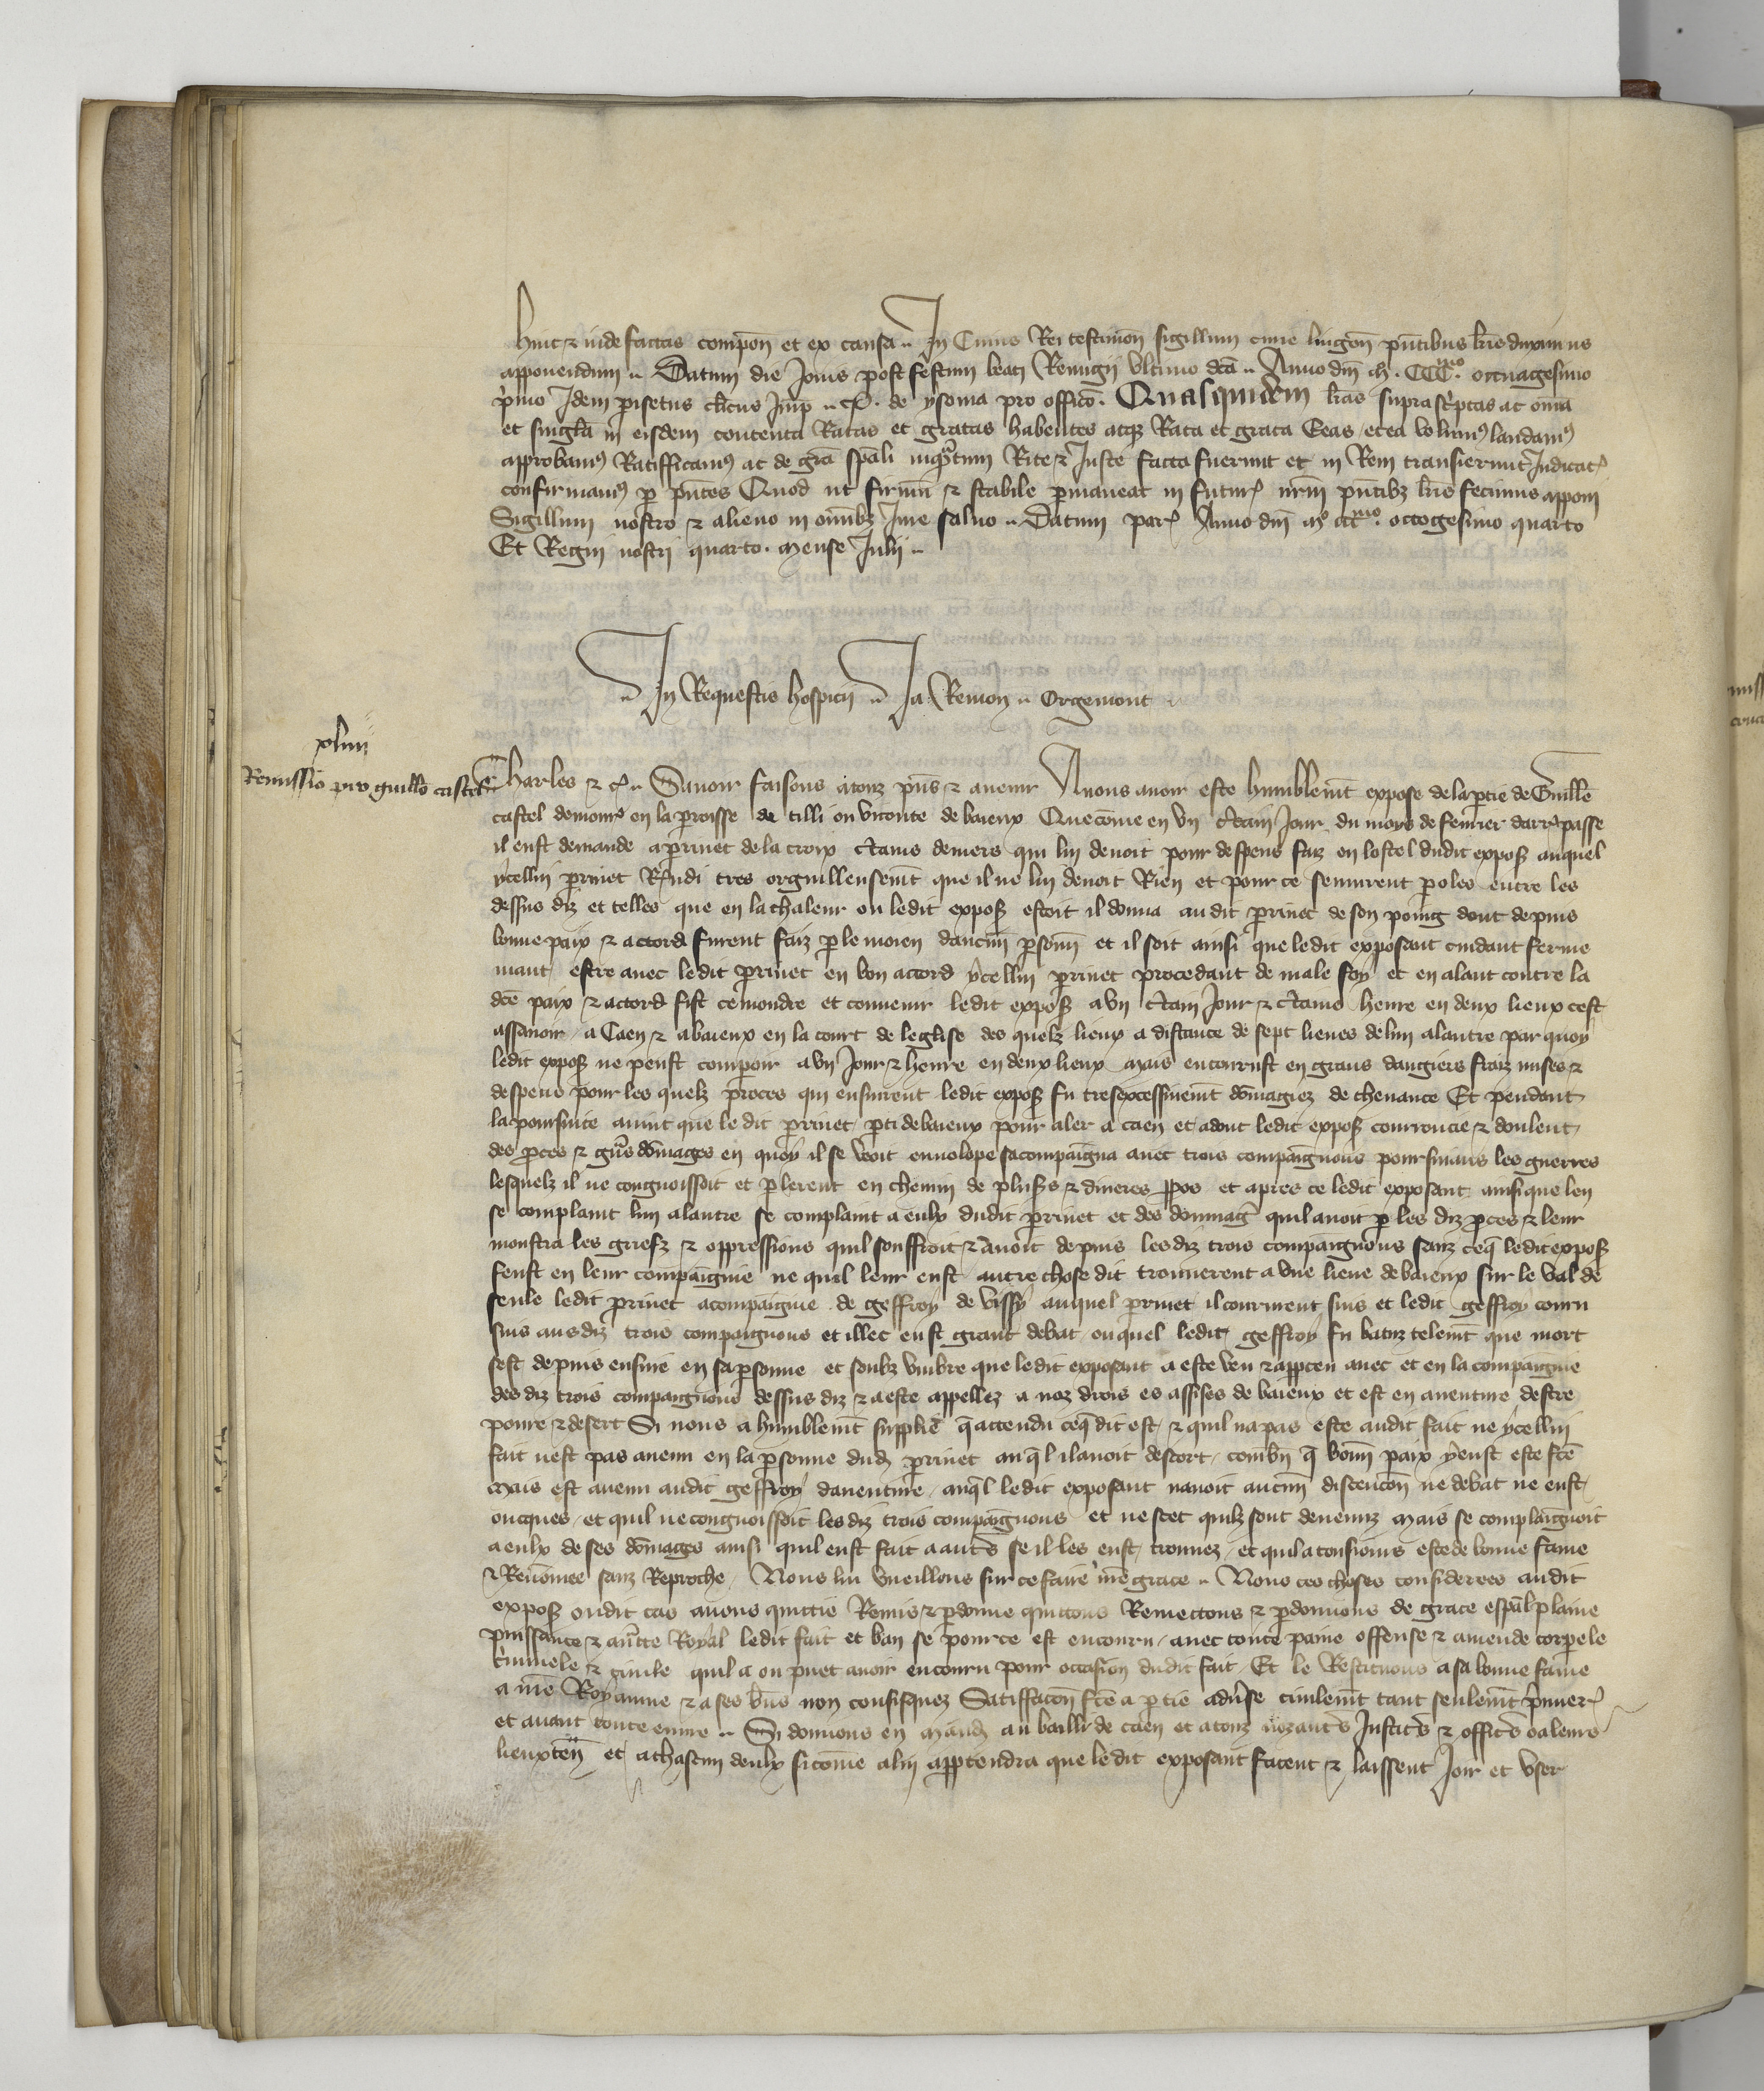 hinc et inde factas compon̄ et ex causa .. In Cuius Rei testimon̄ sigillum curie lingon̄ pn̄tibus lr̄is duximus
apponendum .. Datum die Jouis post festum beati Remigij vltimo dc̄a .. Anno dn̄i m. CCCmo. octuagesimo
p̄mo Idem
et singl̄a in eisdem contenta Ratas et gratas habentes atqz Rata et grata Eeas et ea volumus laudamus
approbamus Ratifficamus ac de gr̄a sp̄ali inquantum Rite et Juste facta fuerunt et in Rem transierunt Judicat̄
confirmamus p pn̄tes Quod ut firmū et stabile pmaneat in futur̄ nr̄m pn̄tibz lr̄is fecimus apponi
Sigillum nostro et alieno in om̄ibz Jure saluo .. Datum par̄ Anno dn̄i mo ccc mo. octogesimo quarto
Et Regni nostri quarto. mense Julij ..
.. In Requestis hospicij .. Ja. Remon .. Orgemont
xliiii
Remissio pro guill̄o castel
Charles et c̄ .. Sauoir faisons a touz pn̄s et auenir A nous auoir este humblemt̄ expose de la ptie de Guill̄e
castel demour̄ en la proisse de tilli ou viconte de baieux Que cōme en vn ctain Jour du mois de feurier darr̄ passe
il eust demande a prinet de la croix ctains deniers qui lui deuoit pour despens faiz en lostel dudit expos̄ auquel
ycellui prinet R̄ndi tres orguilleusemt̄ que il ne lui deuoit Rien et pour ce se murent poles entre les
dessus diz et telles que en la chaleur ou ledit expos̄ estoit il donna au dit prinet de son poing dont depuis
bonne paix et accord furent faiz p le moien daucun̄ psonn̄ et il soit ainsi que ledit exposant cuidant ferme
mant estre auec ledit prinet en bon accord ycellui prinet procedant de male foy et en alant contre la
dc̄e paix et accord fist cemondre et conuenir ledit expos̄ a vn ctain Jour et ctaine heure en deux lieux cest
assauoir a Caen et a baieux en la court de leglise des quelz lieux a distance de sept lieues de lun a lautre par quoy
ledit expos̄ ne peust comparoir a vn Jour et heure en deux lieux mais encourust en grans dangiers fraiz mises et
despens pour les quelz proces qui ensuirent ledit expos̄ fu tresexcessiuemt̄ dōmagiez de cheuance Et pendant
la poursuite auint que le dit prinet pti de baieux pour aler a caen et adont ledit expos̄ courroucie et doulent
des pces et gn̄s dōmages en quoy il se veoit enuolope sacompaigna auec trois compaignons poursuians les guerres
lesquelz il ne congnoissoit et plerent en chemin de plus̄s et diuerses ppos et apres ce ledit exposant ainsi que len
se complaint lun a lautre se complaint a eulx dudit prinet et des dōmaḡ quil auoit p les diz pces et leur
monstra les griefz et oppressions quil souffroit et auoit depuis les diz trois compaignons sanz ceq̄ ledit expos̄
feust en leur compaignie ne quil leur eust autre chose dit trouuerent a vne lieue de baieux sur le val de
seule ledit prinet acompaignie de geffroy de vissy auquel prinet il coururent sus et ledit geffroy couru
sus ausdiz trois compaignons et illec eust grant debat ouquel ledit geffroy fu batuz telemt̄ que mort
sest depuis ensuie en sa psonne et soubz vmbre que ledit exposant a este veu et appceu auec et en la compaignie
des diz trois compaignons dessus diz et a este appellez a noz drois es assises de baieux et est en auenture destre
poure et desert Si nous a humblemt̄ supplie q̄ attendu ceq̄ dit est et quil na pas este audit fait ne ycellui
fait nest pas auenu en la psonne dud̄ prinet auq̄l il auoit descort combn̄ q̄ bonn̄ paix y eust este fc̄e
Mais est auenu audit geffroy dauenture auq̄l ledit exposant nauoit aucun̄ discencōn ne debat ne eust
oncques et quil ne congnoissoit les diz trois compaignons et ne scet quilz sont deuenuz mais se complaignoit
a eulx de ses dōmages ainsi quil eust fait a autr̄s se il les eust trouuez et quil a tousiours este de bonne fame
et Renōmee sanz Reproche Nous lui vueillons sur ce faire nr̄e grace .. Nous ces choses considerees audit
expos̄ oudit cas auons quictie Remis et pdonne quictons Remectons et pdonnons de grace esp̄al plaine
puissance et auc̄te Royal ledit fait et ban se pource est encouru auec toute paine offense et amende corpele
c̄minele et ciuile quil a ou puet auoir encouru pour occasion dudit fait Et le Restituons a sa bonne fame
a nr̄e Royaume et a ses bn̄s non confisquez Satiffacōn fc̄e a ptie aduerse ciuilemt̄ tant seulemt̄ p̄mier̄
et auant toute euure .. Si donnons en mand̄ au bailli de caen et a touz noz autr̄s Justic̄s et offic̄s ou a leurs
lieuxten̄ et a chascun deulx si cōme a lui apptendra que le dit exposant facent et laissent Joir et vser